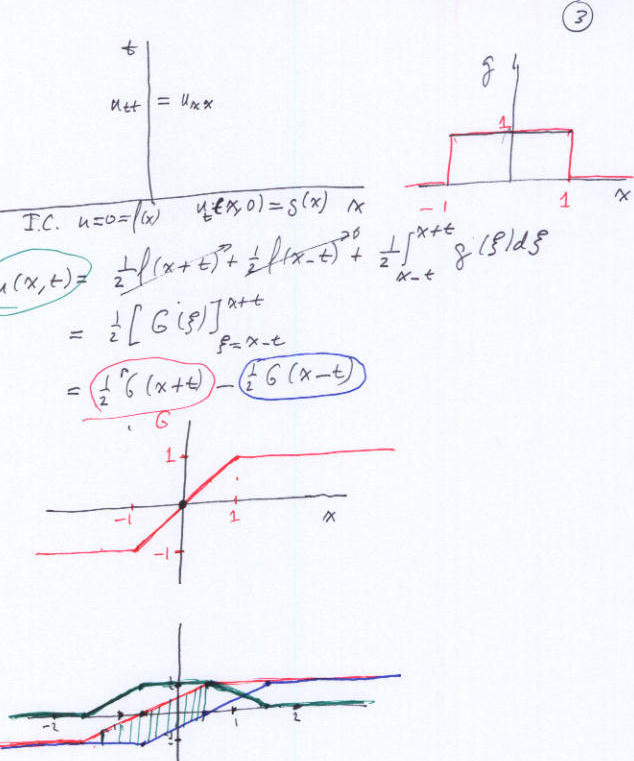 3
t
g
u_tt = u_xx
1
-1 1 x
I.C. u=0=f(x) u_t(x,0)=g(x) x
u(x,t) = 1/2 f(x+t)→0 + 1/2 f(x-t)→0 + 1/2 ∫_{x-t}^{x+t} g(ξ)dξ
= 1/2 [G(ξ)]_{ξ=x-t}^{x+t}
= 1/2 G(x+t) - 1/2 G(x-t)
G
1
-1 1 x
-1
-2 -1 1 2